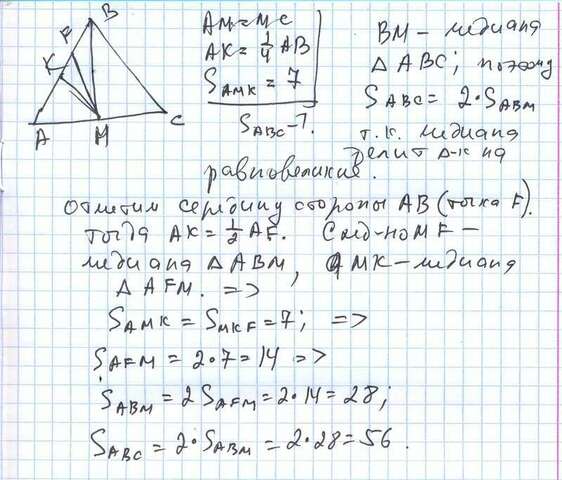 B
F
K
A
M
C
AM=MC
AK=1/4 AB
S_AMK = 7
S_ABC - ?
BM - медиана
△ABC; поэтому
S_ABC = 2·S_ABM
т.к. медиана
делит △-к на
равновеликие.
Отметим середину стороны AB (точка F).
Тогда AK=1/2 AF. След-но MF –
медиана △ABM, а MK – медиана
△AFM. =>
S_AMK = S_MKF = 7; =>
S_AFM = 2·7 = 14 =>
S_ABM = 2 S_AFM = 2·14 = 28;
S_ABC = 2·S_ABM = 2·28 = 56.